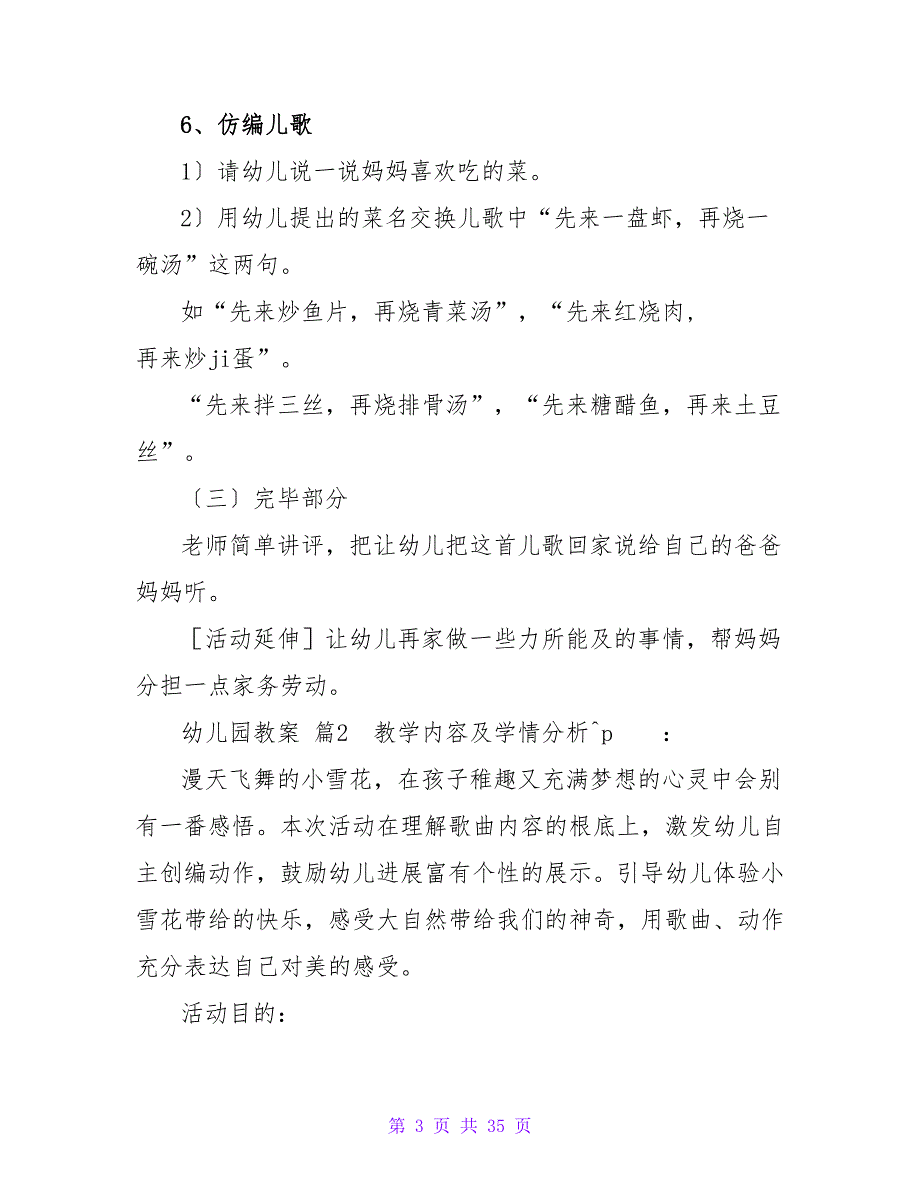 6、仿编儿歌
1〕请幼儿说一说妈妈喜欢吃的菜。
2〕用幼儿提出的菜名交换儿歌中“先来一盘虾，再烧一
碗汤”这两句。
如“先来炒鱼片，再烧青菜汤”，“先来红烧肉，
再来炒ji蛋”。
“先来拌三丝，再烧排骨汤”，“先来糖醋鱼，再来土豆
丝”。
〔三〕完毕部分
老师简单讲评，把让幼儿把这首儿歌回家说给自己的爸爸
妈妈听。
［活动延伸］让幼儿再家做一些力所能及的事情，帮妈妈
分担一点家务劳动。
幼儿园教案 篇2 教学内容及学情分析^p ：
漫天飞舞的小雪花，在孩子稚趣又充满梦想的心灵中会别
有一番感悟。本次活动在理解歌曲内容的根底上，激发幼儿自
主创编动作，鼓励幼儿进展富有个性的展示。引导幼儿体验小
雪花带给的快乐，感受大自然带给我们的神奇，用歌曲、动作
充分表达自己对美的感受。
活动目的：
第 3 页 共 35 页